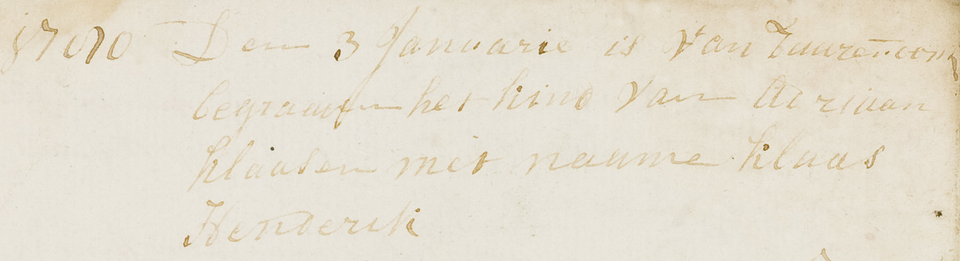 Den 3 Januarie is Van
begraaven het kind Van Adriaan
klaasen met naame klaas
Henderik